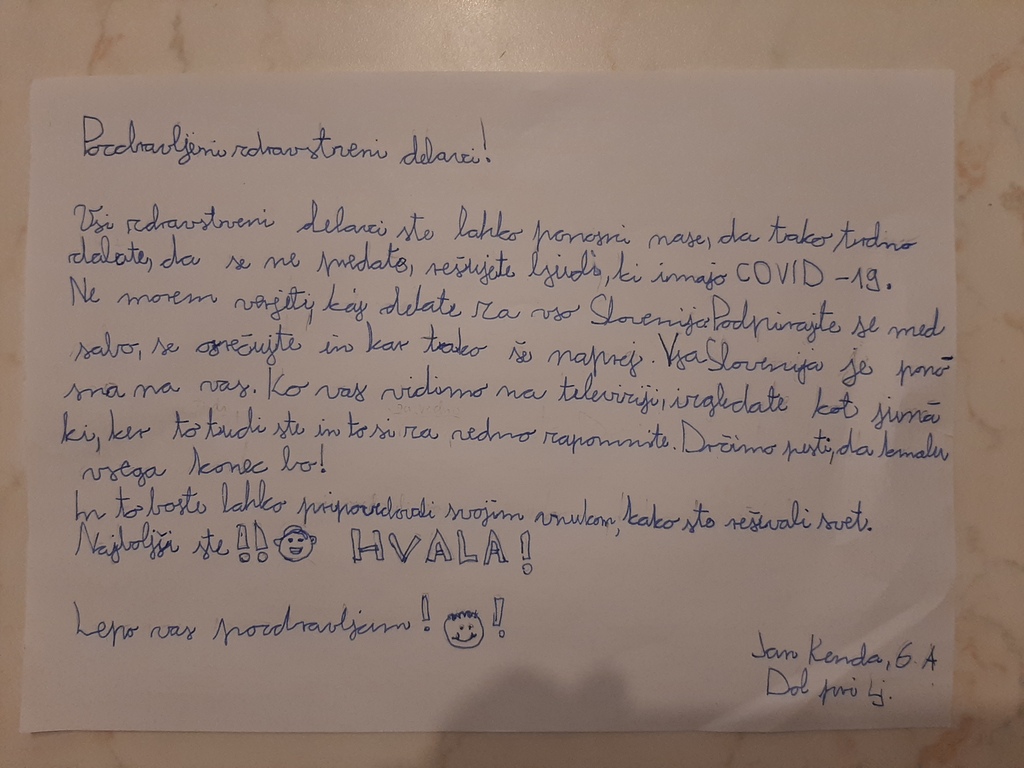 Pozdravljeni zdravstveni delavci!
Vsi zdravstveni delavci ste lahko ponosni nase, da tako trdno
delate, da se ne predate, rešujete ljudi, ki imajo COVID-19.
Ne morem verjeti, kaj delate za vso Slovenijo. Podpirajte se med
sabo, se osrečujte in kar tako še naprej. Vsa Slovenija je pono
sna na vas. Ko vas vidimo na televiziji, izgledate kot juna
ki, ker to tudi ste in to si za vedno zapomnite. Držimo pesti, da kmalu
vsega konec bo!
In to boste lahko pripovedovali svojim vnukom, kako ste reševali svet.
Najboljši ste!!! HVALA!
Lepo vas pozdravljam!!
Jan Kenda, 6. A
Dol pri Lj.